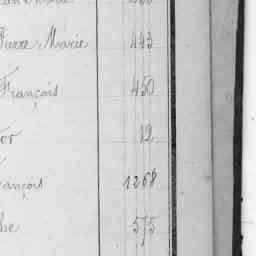 Pierre Marie 443
François 450
12
ançois 1268
575